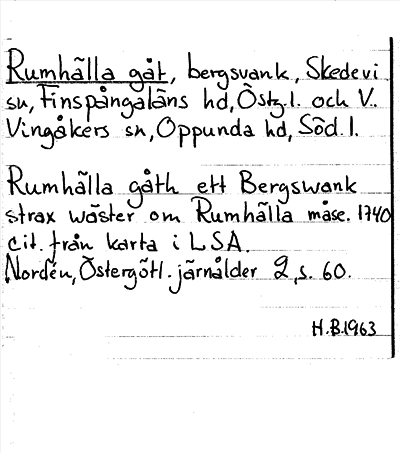 Rumhälla gåt, bergsvank, Skedevi
sn, Finspångaläns hd, Östg.l. och V.
Vingåkers sn, Oppunda hd, Söd. l.
Rumhälla gåth ett Bergswank
strax wäster om Rumhälla måse. 1740
cit. från karta i LSA.
Nordén, Östergötl. järnålder 2, s. 60.
H.B.1963